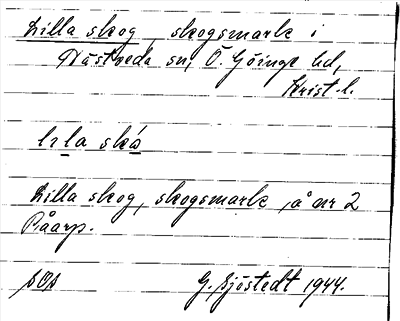 Lilla skog, skogsmark i
Nästveda sn, Ö. Göinge hd,
Krist. l.
lɩla skɷ́
Lilla skog, skogsmark, å nr 2
Påarp.
SOA
G. Sjöstedt 1944.